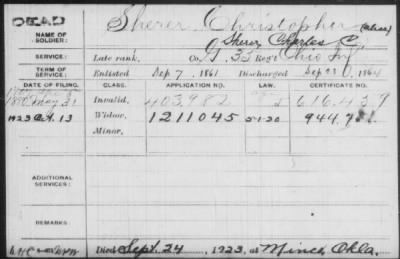 DEAD
NAME OF SOLDIER: Sherer, Christopher (alias)
Sherer, Charles C.
SERVICE: Late rank, Co. G, 35 Reg't Ohio Inf
TERM OF SERVICE: Enlisted Sep 7, 1861 Discharged Sep 27, 1864
DATE OF FILING. CLASS. APPLICATION NO. LAW. CERTIFICATE NO.
1880 May 31 Invalid, 403,982 616,439
1923 Oct. 13 Widow, 1211045 5-1-20 944.7
Minor,
ADDITIONAL SERVICES:
REMARKS:
Died Sept. 24, 1923, at Minco, Okla.